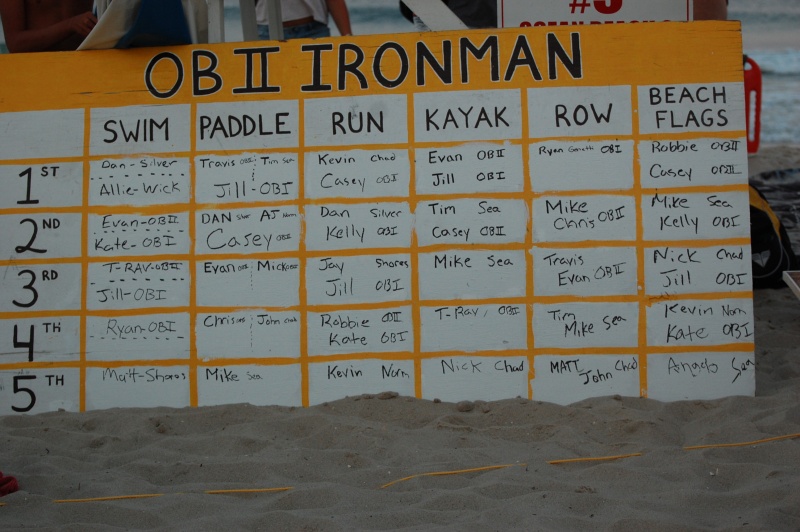 #3
OB II IRONMAN
SWIM PADDLE RUN KAYAK ROW BEACH FLAGS
1ST
Dan-Silver
Allie-Wick
Travis OBI Tim Sea
Jill-OBI
Kevin Chad
Casey OBI
Evan OBII
Jill OBI
Ryan OBI
Robbie OBII
Casey OBII
2ND
Evan-OBII
Kate-OBI
DAN Silver AJ Norm
Casey OBI
Dan Silver
Kelly OBI
Tim Sea
Casey OBII
Mike
Chris OBII
Mike Sea
Kelly OBI
3RD
T-RAV-OBII
Jill-OBI
Evan Mick
Jay Shores
Jill OBI
Mike Sea
Travis
Evan OBII
Nick Chad
Jill OBI
4TH
Ryan-OBI
Chris John Chad
Robbie OBII
Kate OBI
T-Rav, OBI
Tim
Mike Sea
Kevin Norm
Kate OBI
5TH
Matt-Shores
Mike Sea
Kevin Norm
Nick Chad
MATT Chad
John
Angelo Sea